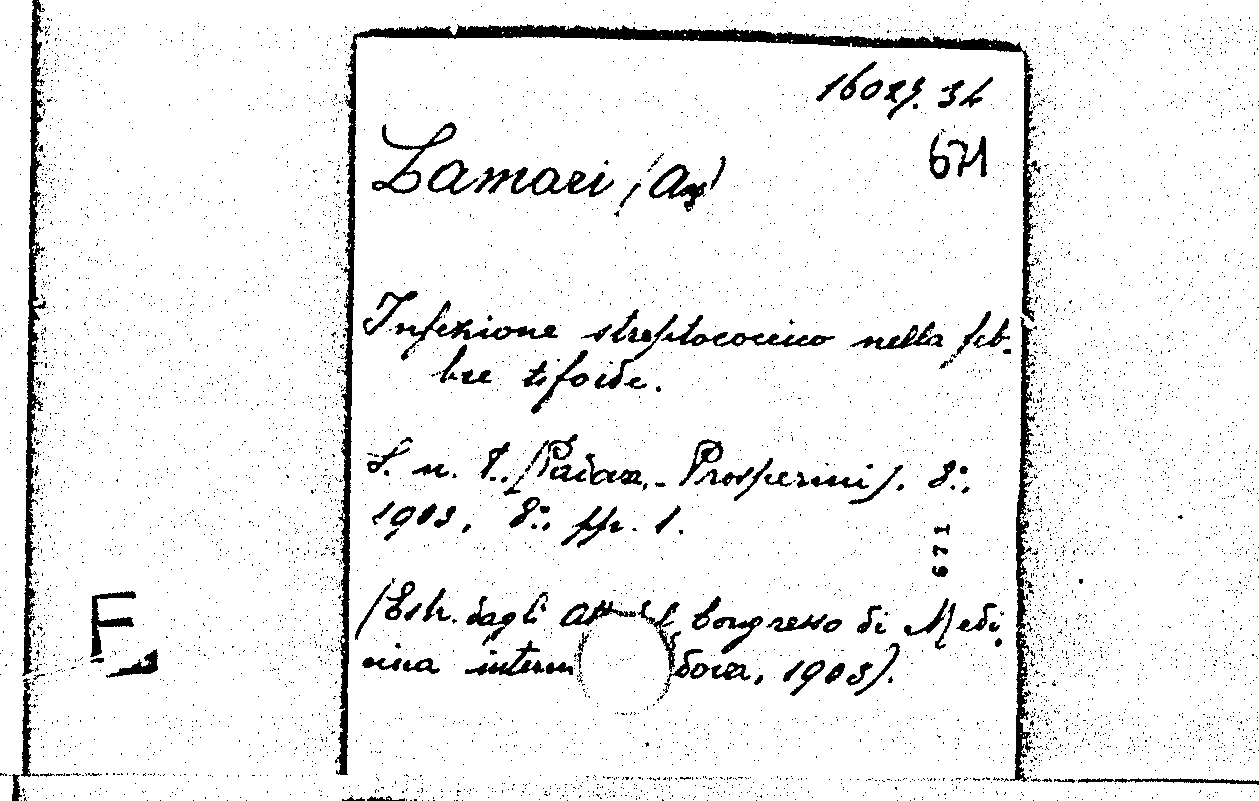 16029. 34
671
Lamari (A
Infezione streptococcica nella feb-
bre tifoide.
S. n. T. (Padova, - Prosperini). 8°.,
1903, 8°., pp. 1.
671
(Estr. dagli Att Congresso di Medi
cina intern dova, 1903).
F